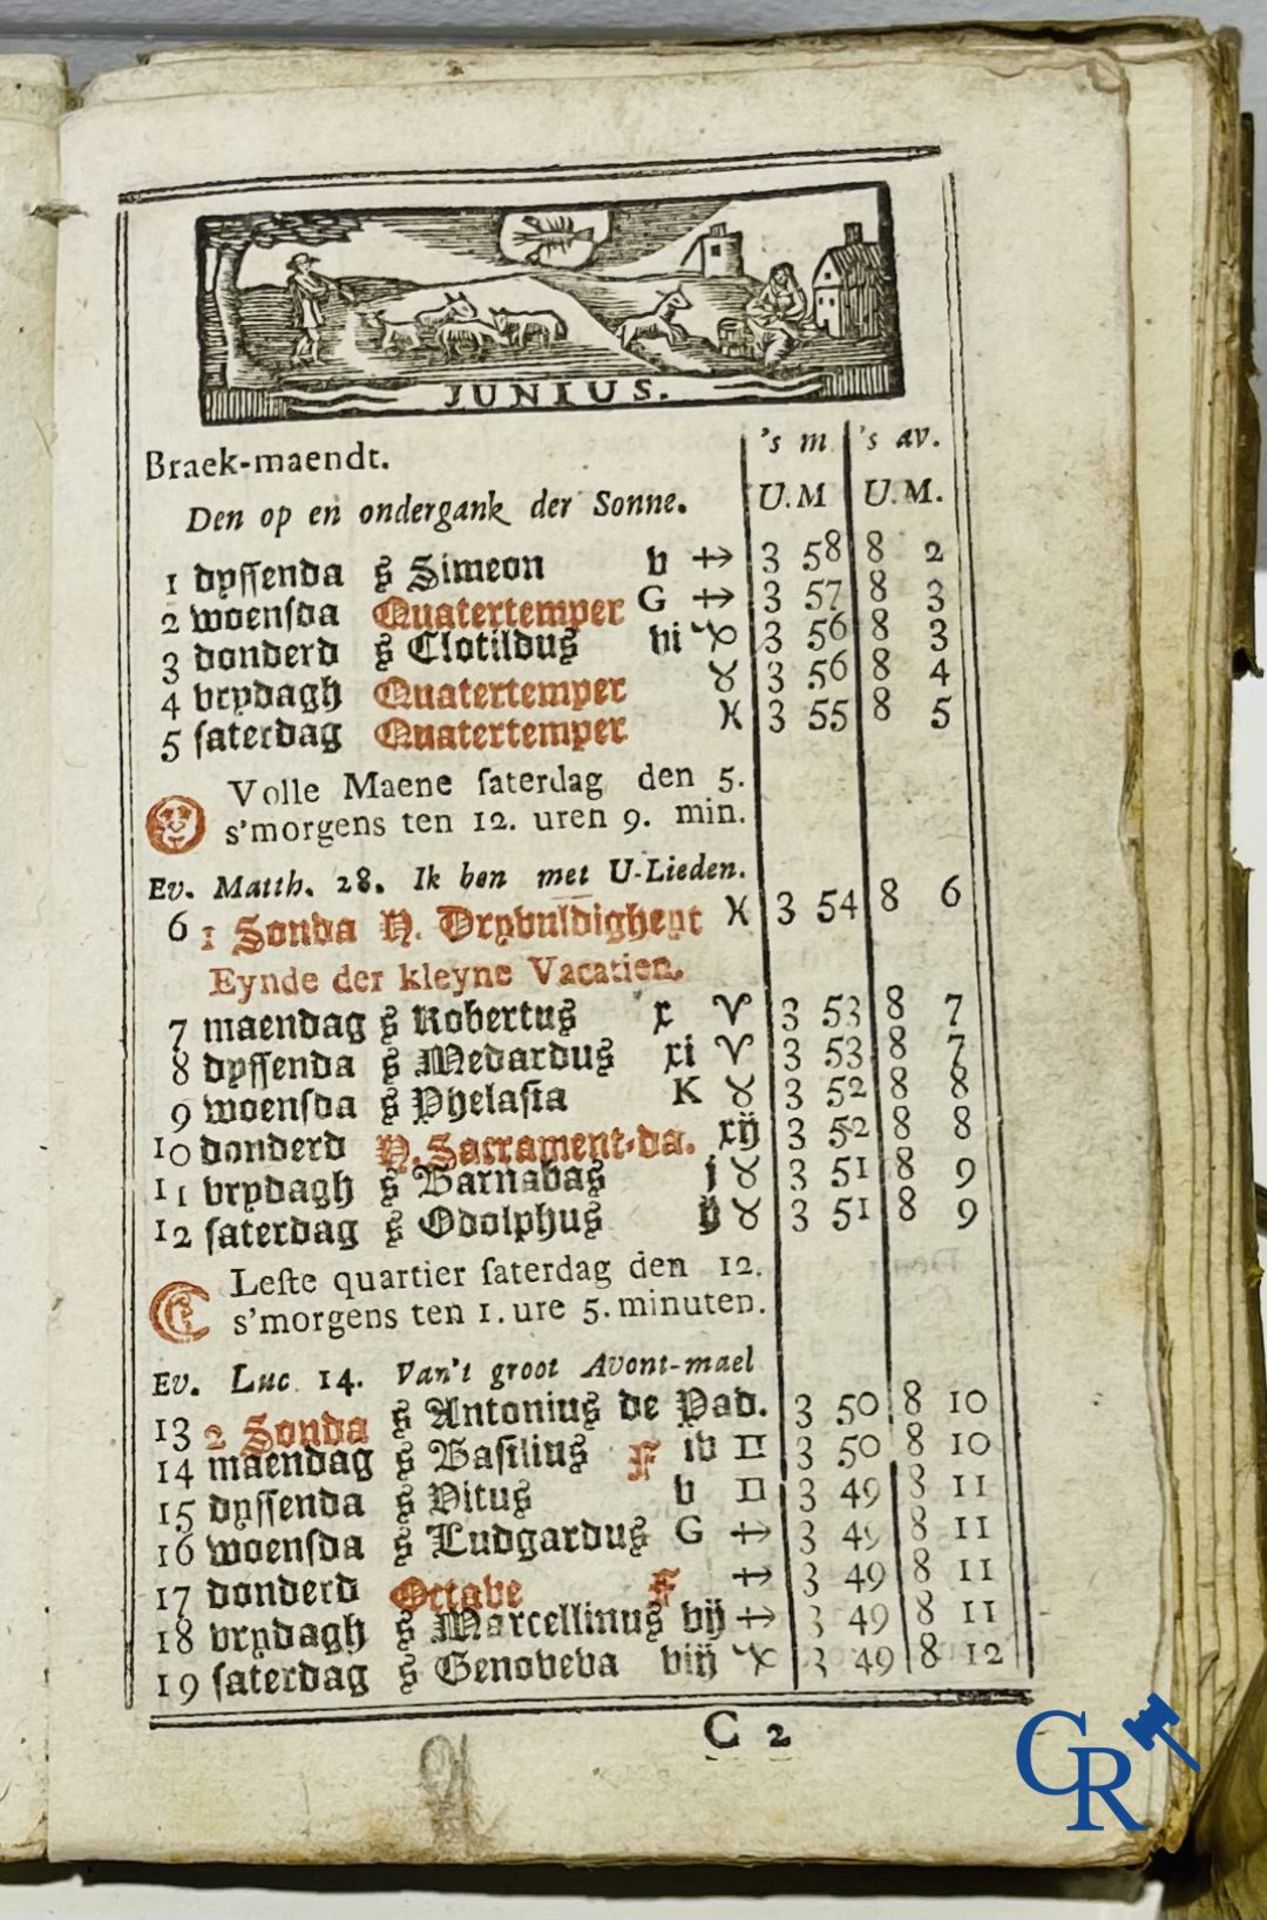 JUNIUS.
's m 's av.
Braek-maendt.
U.M U.M.
Den op en ondergank der Sonne.
1 dyſſenda s Simeon v ♐ 3 58 8 2
2 woenſda Quatertemper G ♐ 3 57 8 3
3 donderd s Clotildus vi ♑ 3 56 8 3
4 vrydagh Quatertemper ♉ 3 56 8 4
5 ſaterdag Quatertemper ♓ 3 55 8 5
Volle Maene ſaterdag den 5.
s'morgens ten 12. uren 9. min.
Ev. Matth. 28. Ik ben met U-Lieden.
6 1 Sonda H. Dryvuldigheyt ♓ 3 54 8 6
Eynde der kleyne Vacatien.
7 maendag s Robertus x ♈ 3 53 8 7
8 dyſſenda s Medardus xi ♈ 3 53 8 7
9 woenſda s Phelaſia K ♉ 3 52 8 8
10 donderd H. Sacrament-da. xij 3 52 8 8
11 vrydagh s Barnabas j ♉ 3 51 8 9
12 ſaterdag s Odolphus ij ♉ 3 51 8 9
Leſte quartier ſaterdag den 12.
s'morgens ten 1. ure 5. minuten.
Ev. Luc. 14. Van't groot Avont-mael
13 2 Sonda s Antonius de Pad. 3 50 8 10
14 maendag s Baſilius F iv ♊ 3 50 8 10
15 dyſſenda s Vitus v ♊ 3 49 8 11
16 woenſda s Ludgardus G ♐ 3 49 8 11
17 donderd Octave F ♐ 3 49 8 11
18 vrydagh s Marcellinus vij ♐ 3 49 8 11
19 ſaterdag s Genoveva viij ♑ 3 49 8 12
C 2
CR